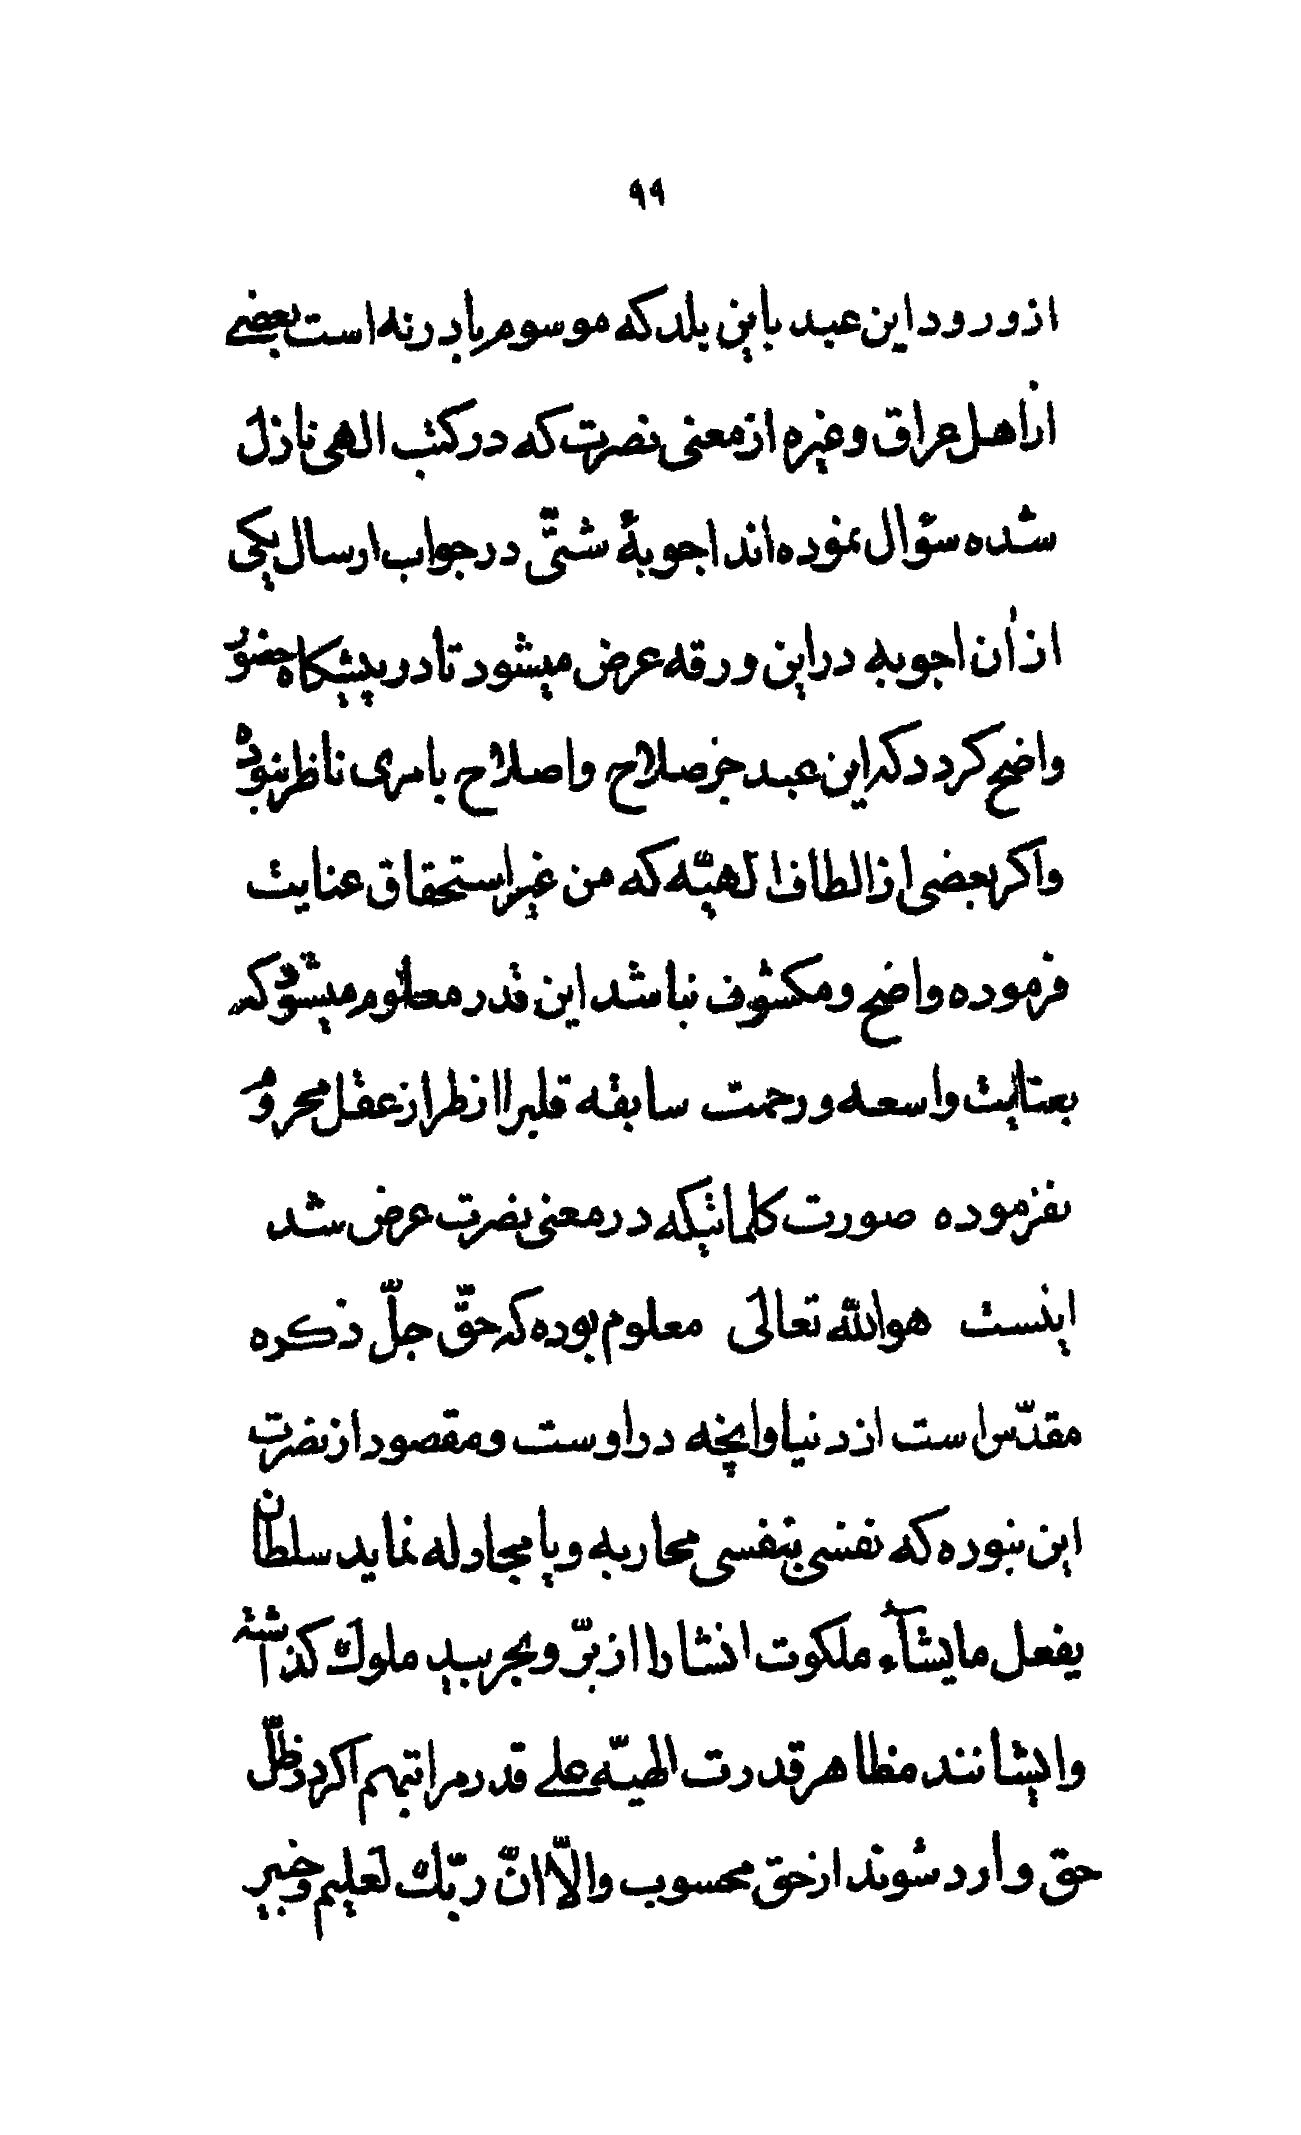 ۹۹
از ورود این عبد باین بلد که موسوم بادرنه است بعضی
از اهل عراق و غیره از معنی نصرت که در کتب الهی نازل
شده سؤال نموده اند اجوبهٔ شتّی در جواب ارسال یکی
از ان اجوبه در این ورقه عرض میشود تا در پیشگاه حضور
واضح گردد که این عبد جز صلاح و اصلاح بامری ناظر نبوده
و اگر بعضی از الطاف الهیّه که من غیر استحقاق عنایت
فرموده واضح و مکشوف نباشد این قدر معلوم میشود که
بعنایت واسعه و رحمت سابقه قلب را از طراز عقل محروم
نفرموده صورت کلماتیکه در معنی نصرت عرض شد
اینست هو الله تعالی معلوم بوده که حقّ جلّ ذکره
مقدّس است از دنیا و آنچه در اوست و مقصود از نصرت
این نبوده که نفسی بنفسی محاربه و یا مجادله نماید سلطان
یفعل ما یشآء ملکوت انشا را از برّ و بحر بید ملوک گذاشته
و ایشانند مظاهر قدرت الهیّه علی قدر مراتبهم اگر در ظلّ
حق وارد شوند از حق محسوب و الّا انّ ربّک لعلیم و خبیر